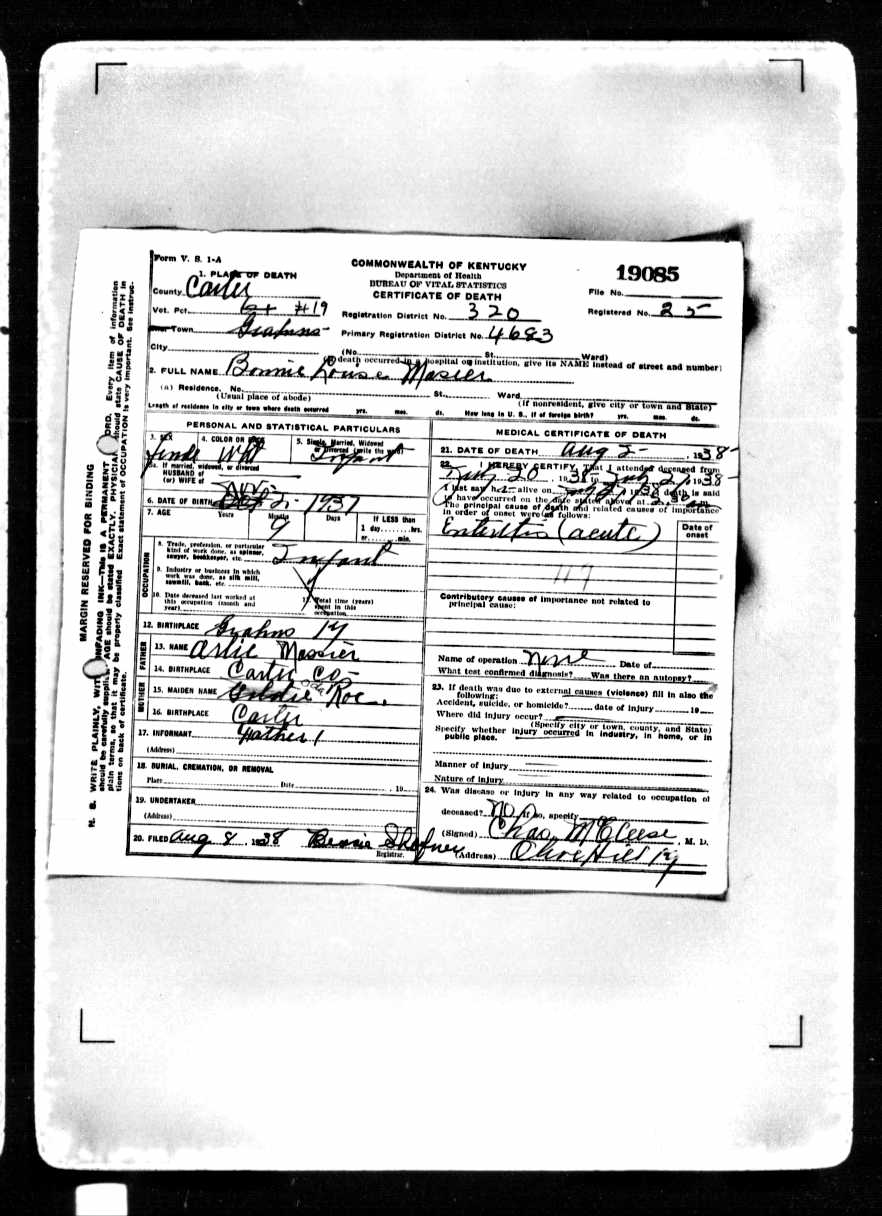 Form V. S. 1-A
COMMONWEALTH OF KENTUCKY
Department of Health
BUREAU OF VITAL STATISTICS
CERTIFICATE OF DEATH
19085
1. PLACE OF DEATH
County Carter
File No.
Vot. Pct. #19
Registration District No. 320
Registered No. 25
Town Grahns
Primary Registration District No. 4683
City
(No. St. Ward)
(If death occurred in a hospital or institution, give its NAME instead of street and number)
2. FULL NAME Bonnie Louise Masier
(a) Residence. No. St. Ward
(Usual place of abode)
(If nonresident, give city or town and State)
Length of residence in city or town where death occurred yrs. mos. ds. How long in U. S., if of foreign birth? yrs. mos. ds.
PERSONAL AND STATISTICAL PARTICULARS
3. SEX
4. COLOR OR RACE Wht
5. Single, Married, Widowed or Divorced (write the word) Infant
5a. If married, widowed, or divorced
HUSBAND of
(or) WIFE of
6. DATE OF BIRTH 2- 1937
7. AGE Years Months 9 Days If LESS than
1 day hrs.
or min.
OCCUPATION
8. Trade, profession, or particular
kind of work done, as spinner,
sawyer, bookkeeper, etc. Infant
9. Industry or business in which
work was done, as silk mill,
sawmill, bank, etc.
10. Date deceased last worked at
this occupation (month and
year)
11. Total time (years)
spent in this
occupation
12. BIRTHPLACE Grahns Ky
FATHER
13. NAME Arlie Massier
14. BIRTHPLACE Carter Co
MOTHER
15. MAIDEN NAME Goldie Roe
16. BIRTHPLACE Carter
17. INFORMANT Father
(Address)
18. BURIAL, CREMATION, OR REMOVAL
Place Date 19
19. UNDERTAKER
(Address)
20. FILED Aug 8, 1938 Bessie
Registrar.
MEDICAL CERTIFICATE OF DEATH
21. DATE OF DEATH Aug 2- 1938-
22. I HEREBY CERTIFY, That I attended deceased from
20, 1938 to 1938-
I last saw her alive on 1938 death is said
to have occurred on the date stated above at 2.30 am
The principal cause of death and related causes of importance
in order of onset were as follows:
Enteritis (acute)
Date of
onset
119
Contributory causes of importance not related to
principal cause:
Name of operation None Date of
What test confirmed diagnosis? Was there an autopsy?
23. If death was due to external causes (violence) fill in also the
following:
Accident, suicide, or homicide? date of injury 19
Where did injury occur?
(Specify city or town, county, and State)
Specify whether injury occurred in industry, in home, or in
public place.
Manner of injury
Nature of injury
24. Was disease or injury in any way related to occupation of
deceased? No If so, specify
(Signed) Chas. McCleese, M. D.
(Address) Olive Hill Ky
MARGIN RESERVED FOR BINDING
N. B. WRITE PLAINLY, WITH UNFADING INK—THIS IS A PERMANENT RECORD. Every item of information
should be carefully supplied. AGE should be stated EXACTLY. PHYSICIANS should state CAUSE OF DEATH in
plain terms, so that it may be properly classified. Exact statement of OCCUPATION is very important. See instruc-
tions on back of certificate.